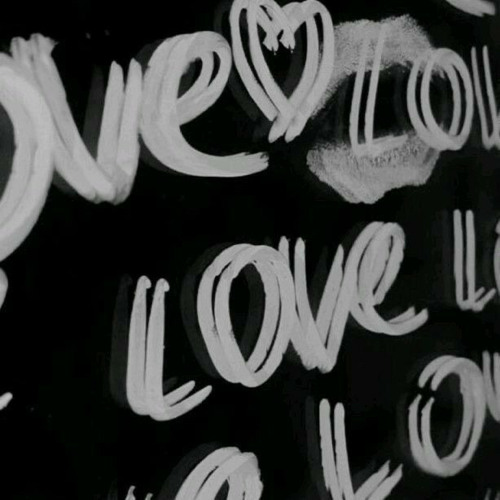 ove Lov
Love L
Lo
Lo